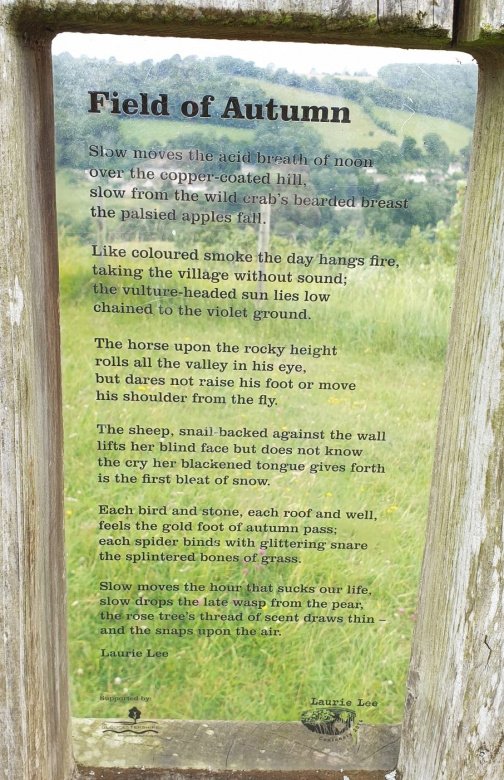 Field of Autumn
Slow moves the acid breath of noon
over the copper-coated hill,
slow from the wild crab's bearded breast
the palsied apples fall.
Like coloured smoke the day hangs fire,
taking the village without sound;
the vulture-headed sun lies low
chained to the violet ground.
The horse upon the rocky height
rolls all the valley in his eye,
but dares not raise his foot or move
his shoulder from the fly.
The sheep, snail-backed against the wall
lifts her blind face but does not know
the cry her blackened tongue gives forth
is the first bleat of snow.
Each bird and stone, each roof and well,
feels the gold foot of autumn pass;
each spider binds with glittering snare
the splintered bones of grass.
Slow moves the hour that sucks our life,
slow drops the late wasp from the pear,
the rose tree's thread of scent draws thin –
and the snaps upon the air.
Laurie Lee
Supported by:
Laurie Lee